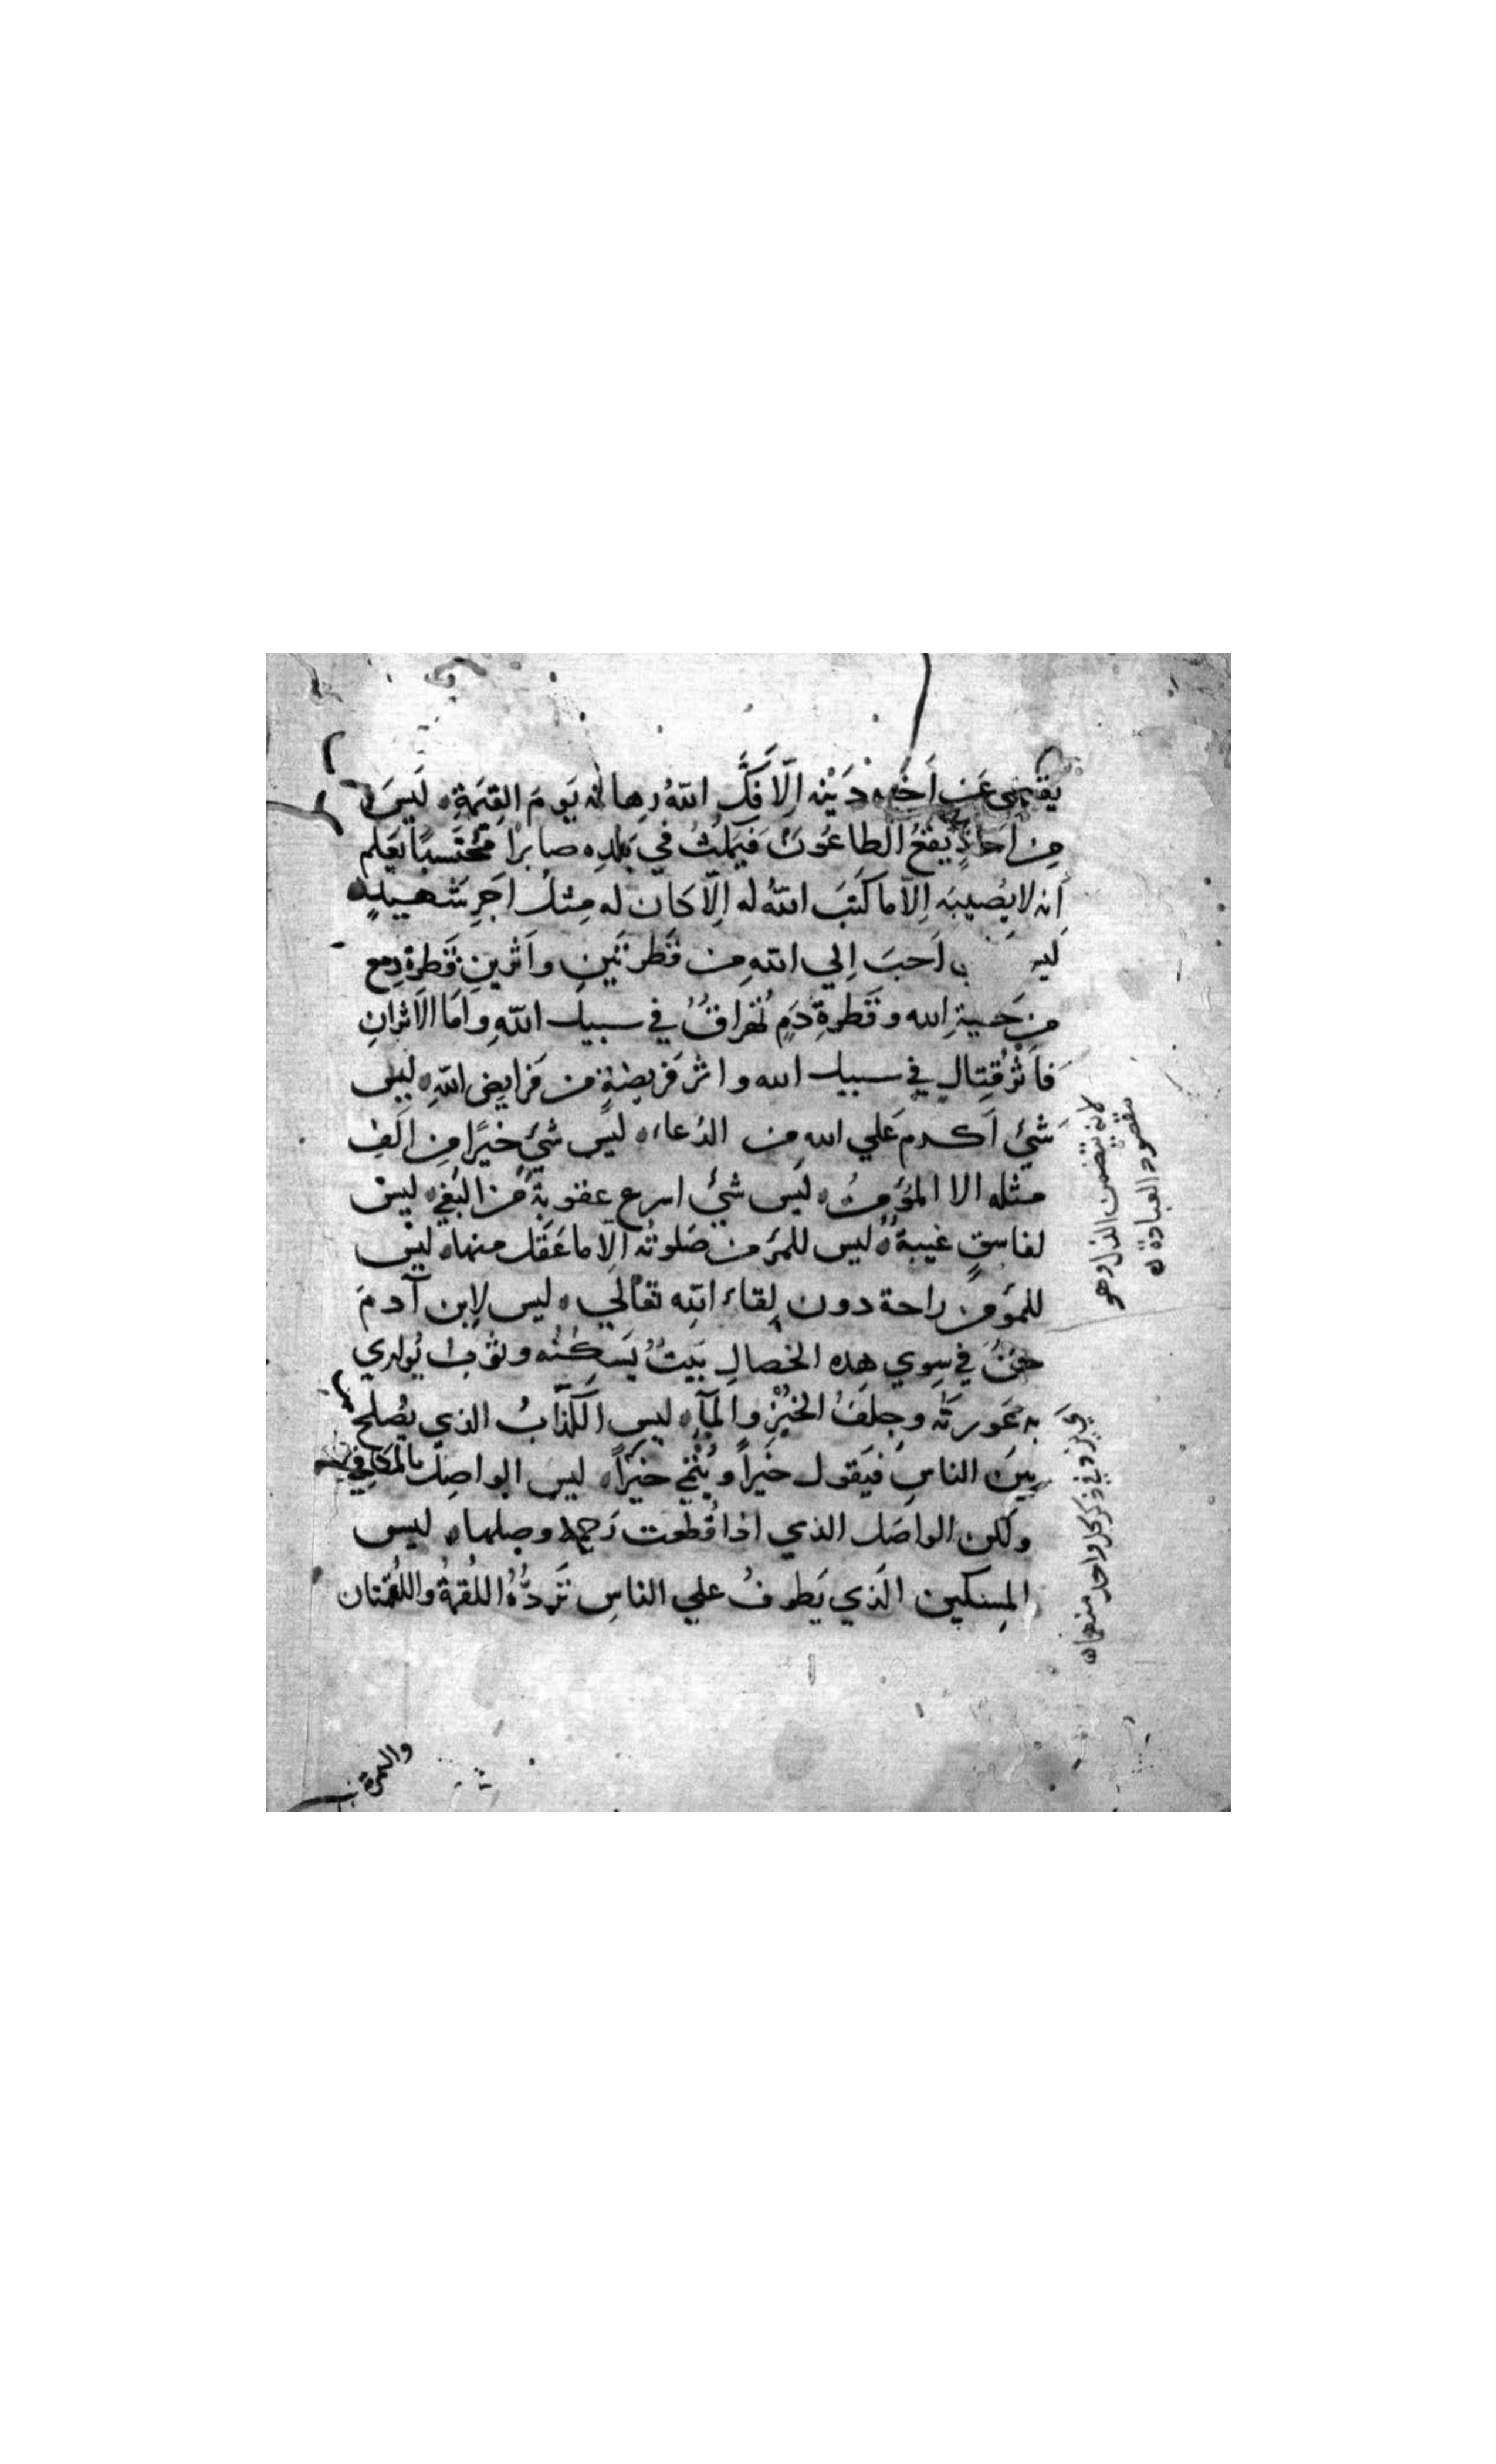 يقضي عَن اَخيه دَيْنه اِلّا فَكَّ اللهُ رهانه يَومَ القِيمَةِ ه لَيسَ
مِن اَحَدٍ يقعُ الطاعُونُ فَيَمكُثُ في بَلدِه صابراً مُحْتَسِبًا يَعلم
اَنه لا يُصيبه اِلّا ما كَتَبَ اللهُ له اِلّا كان له مِثلُ اَجرِ شَهيدٍ ه
ليـ اَحبَ اِلي اللهِ من قَطرتَينِ واَثَرينِ قَطرةُ دمع
مِن خَشيةِ الله وقَطرةِ دَمٍ تُهَراقُ في سبيل اللهِ واَما الاَثَرانِ
فاَثَرُ قِتالٍ في سبيل الله واثر فَريضةٍ من فَرايضِ اللهِ ه ليس
شئٌ اَكرم عَلي الله من الدُعاء ه ليسَ شئٌ خَيرًا مِن اَلفِ
مثله الا المؤمنُ ه ليس شئٌ اسرع عقوبةً من البَغي ه ليسَ
لفاسقٍ غيبةٌ ه ليس للمرء من صَلوتُه اِلّا ما عَقَل منها ه ليس
للمؤمن راحة دون لِقاء الله تعالي ه ليس لاِبن آدمَ
حَقٌ في سِوي هذه الخصالِ بَيتٌ يَسكُنُه وثوبٌ يُواري
به عَورتَه وجلفُ الخُبْزِ والمآءِ ه ليس الكذّابُ الذي يُصلح
بينَ الناسِ فيَقول خَيراً ويُنْمي خيرًا ه ليسَ الواصِلُ بالمكافي
ولكن الواصَل الذي اذا قُطعت رَحمه وصلها ه ليس
المِسكين الَذي يَطوفُ علي الناسِ تَرُدُّهُ اللُقمةُ واللقمتان
لانه يتضمن الذل وهو
مقصود العبادة ه
ذكر كل واحد منهما ه
والتمرة